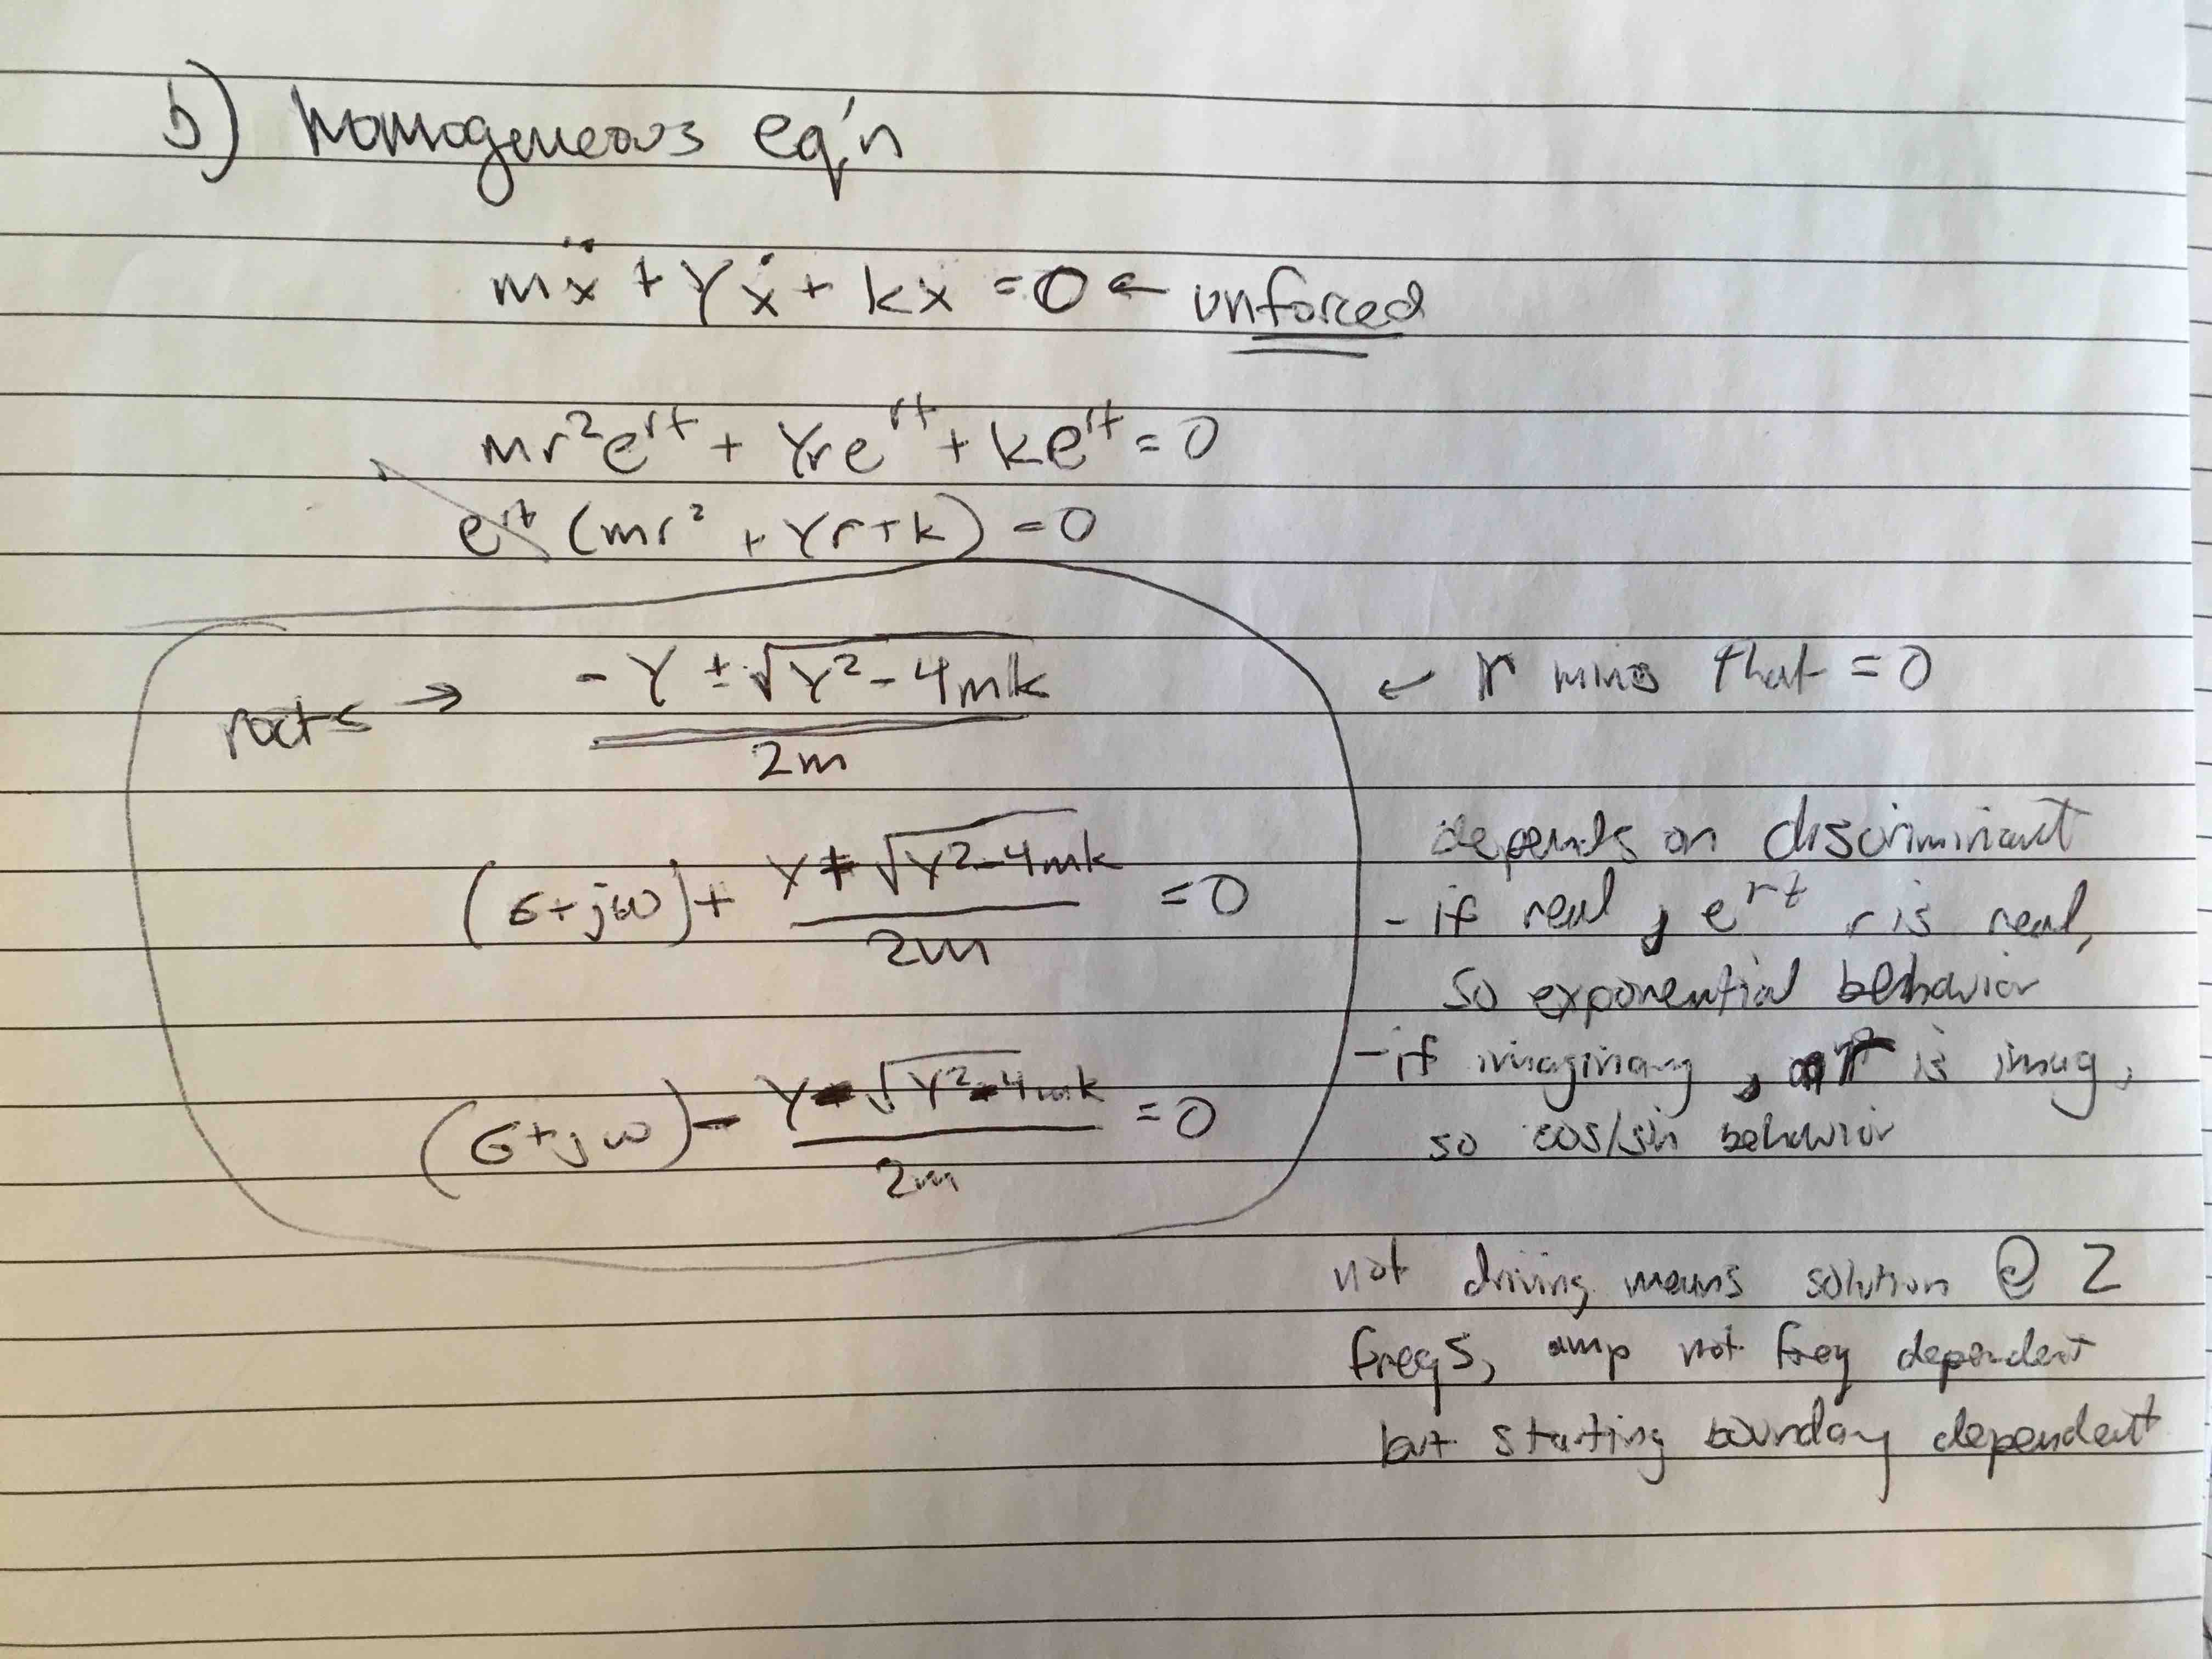 b) homogeneous eq'n
mẍ + γẋ + kx = 0 ← unforced
mr²e^rt + γre^rt + ke^rt = 0
e^rt (mr² + γr + k) = 0
roots → (-γ ± √(γ² - 4mk)) / 2m ← r mins that = 0
(σ + jω) + (γ + √(γ² - 4mk)) / 2m = 0
depends on discriminant
- if real, e^rt r is real,
so exponential behavior
- if imaginary, r is imag,
so cos/sin behavior
(σ + jω) - (γ - √(γ² - 4mk)) / 2m = 0
not driving means solution @ 2
freqs, amp not freq dependent
but starting boundary dependent